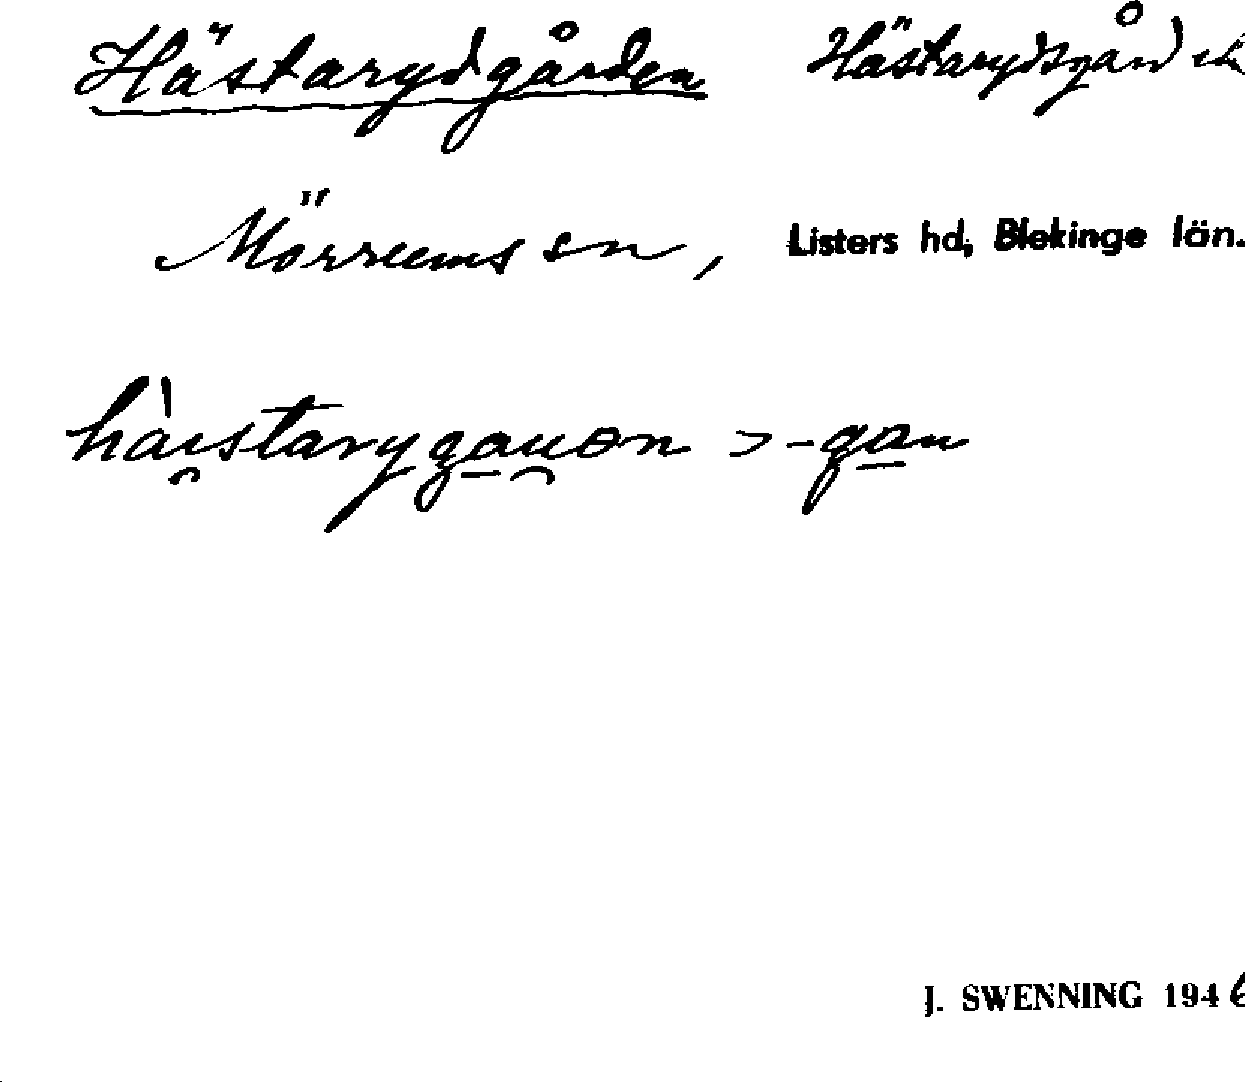 Hästarydgården Hästarydsgården
Mörrums sn, Listers hd, Blekinge län.
J. SWENNING 1946